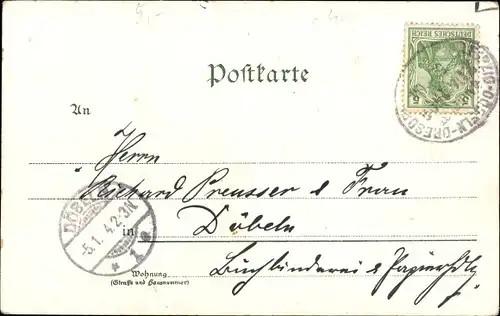 5,-
Postkarte
DEUTSCHES REICH
5 5
LEIPZIG-DÖBELN-DRESDEN
An
Herrn
Richard Preusser & Frau
in Döbeln
DÖBELN
-5.1. 4.2-3N.
* 1 a
Buchbinderei & Papierhdlg
Wohnung
(Straße und Hausnummer)